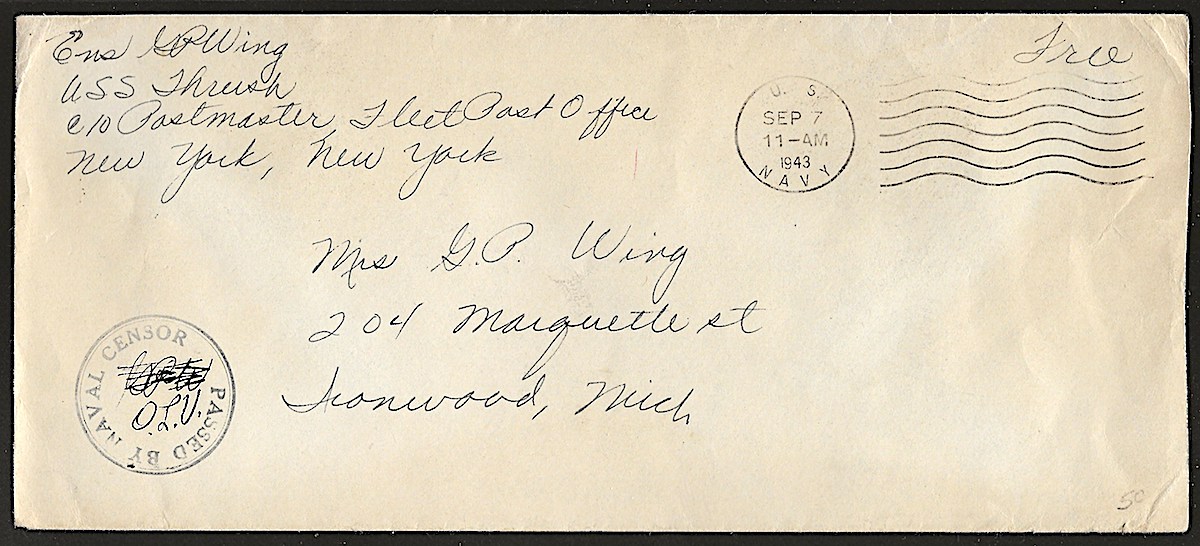 Ens GP Wing
USS Thrush
c/o Postmaster, Fleet Post Office
New York, New York
Free
U. S.
SEP 7
11-AM
1943
NAVY
Mrs G.P. Wing
204 Marquette st
Ironwood, Mich
PASSED BY NAVAL CENSOR
O.L.V.
50